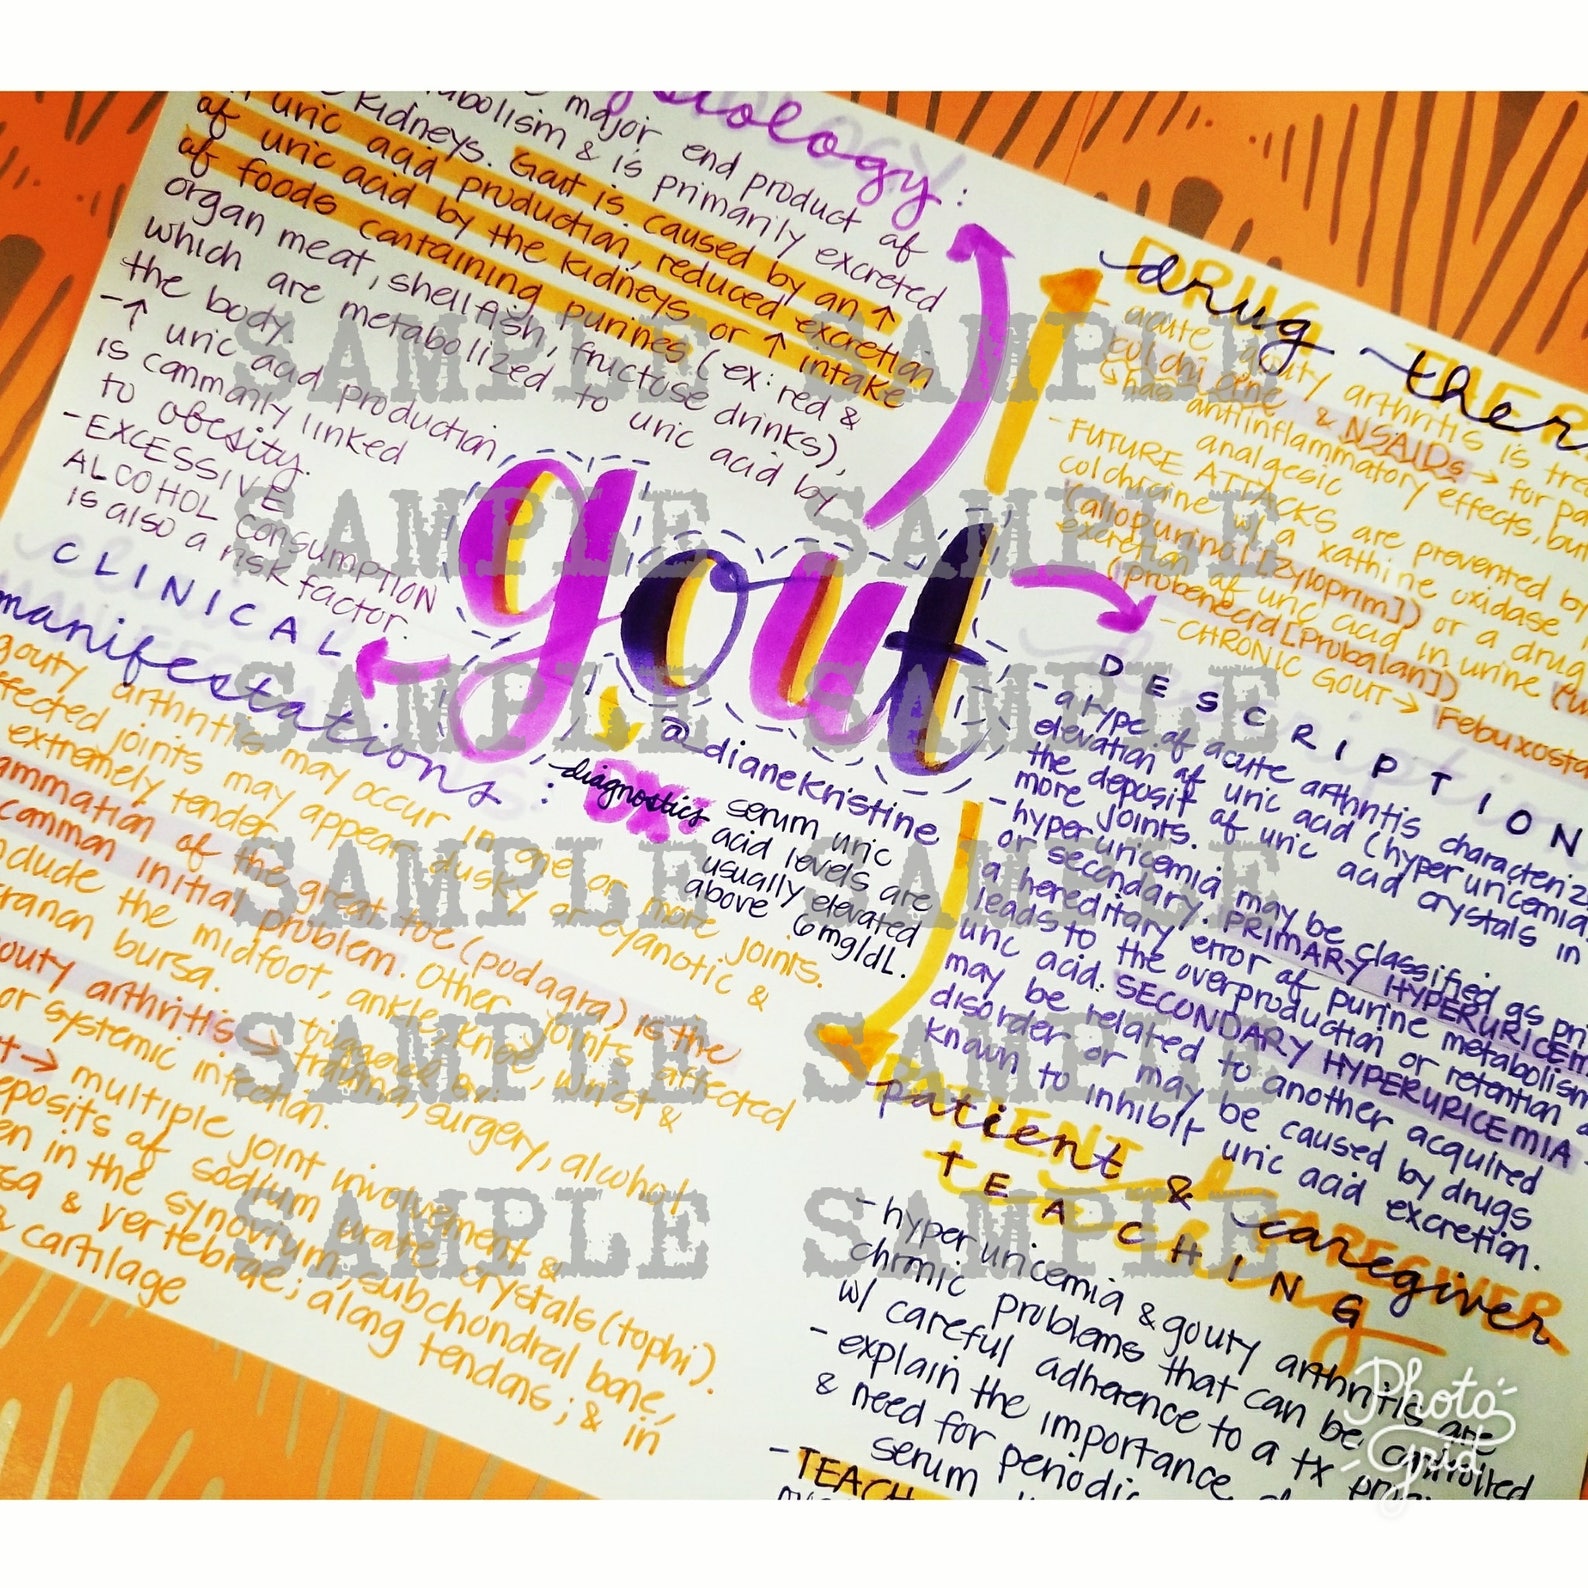 siology:
major end product of
abolism & is primarily excreted
kidneys. Gout is caused by an ↑
in uric acid production, reduced excretion
of uric acid by the kidneys or ↑ intake
of foods containing purines (ex: red &
organ meat, shellfish, fructose drinks),
which are metabolized to uric acid by
the body.
-↑ uric acid production
is commonly linked
to obesity.
-EXCESSIVE
ALCOHOL consumption
is also a risk factor.
CLINICAL
manifestations:
gouty arthritis may occur in one or more joints.
ffected joints may appear dusky or cyanotic &
extremely tender
ammation of the great toe (podagra) is the
common initial problem. Other joints affected
nclude the midfoot, ankle, knee, wrist &
cranon bursa.
outy arthritis → triggered by:
trauma, surgery, alcohol
or systemic infection.
t→ multiple joint involvement &
eposits of sodium urate crystals (tophi).
en in the synovium, subchondral bone,
sa & vertebrae; along tendons; & in
& cartilage
gout
@dianekristine
diagnostics
DX:
serum uric
acid levels are
usually elevated
above 6mg/dL.
DRUG THER
drug ther
- acute gouty arthritis is trea
colchicine & NSAIDs → for pa
↳has antiinflammatory effects, but
analgesic
-FUTURE ATTACKS are prevented by
colchicine w/ a xathine oxidase
(allopurinol [zyloprim]) or a drug
excretion of uric acid in urine
(probenecid [Probalan])
-CHRONIC GOUT→ Febuxosta
DESCRIPTION
description
-a type of acute arthritis characteriz
elevation of uric acid (hyperuricemia
the deposit of uric acid crystals in
more joints.
-hyperuricemia may be classified as pri
or secondary. PRIMARY HYPERURICEM
a hereditary error of purine metabolism
leads to the overproduction or retention
uric acid. SECONDARY HYPERURICEMIA
may be related to another acquired
disorder or may be caused by drugs
known to inhibit uric acid excretion.
PATIENT & CAREGIVER
patient & caregiver
TEACHING
teaching
-hyperuricemia & gouty arthritis are
chronic problems that can be controlled
w/ careful adherence to a tx
-explain the importance
& need for periodic
serum
-TEACH
SAMPLE SAMPLE
SAMPLE SAMPLE
SAMPLE SAMPLE
SAMPLE SAMPLE
SAMPLE SAMPLE
SAMPLE SAMPLE
Photo
grid